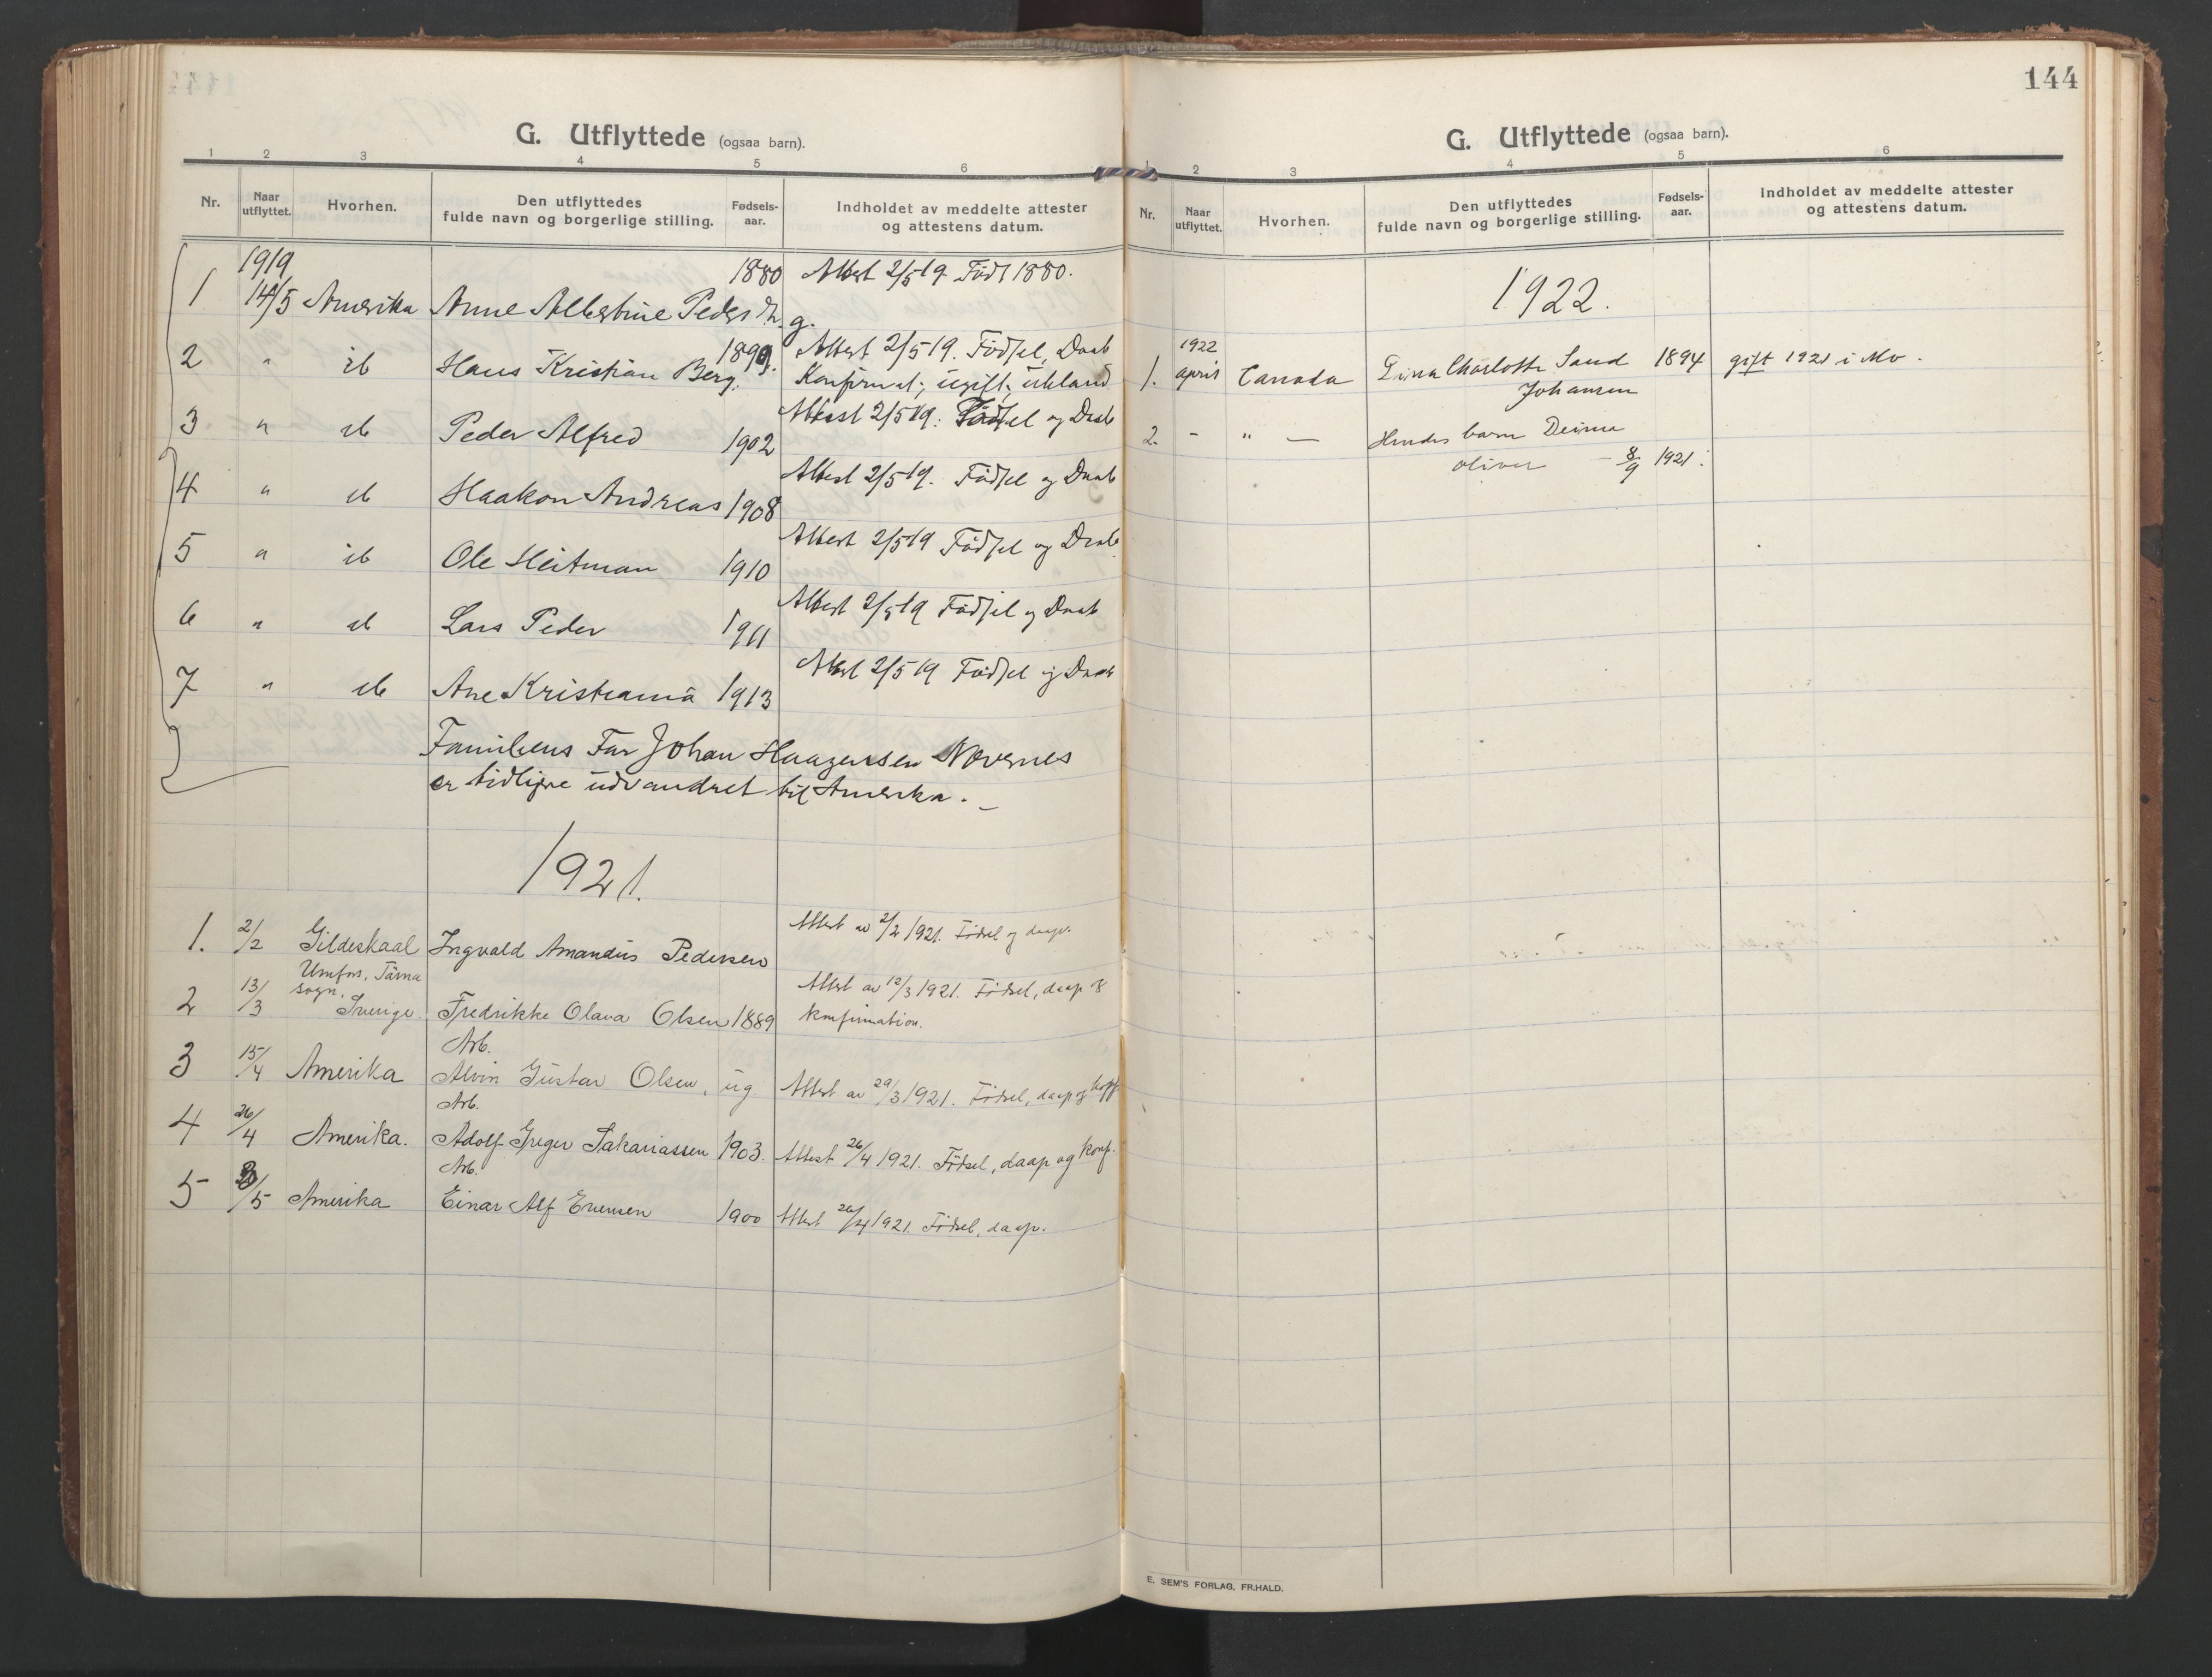 G. Utflyttede (ogsaa barn).
1 2 3 4 5 6
Nr. Naar utflyttet. Hvorhen. Den utflyttedes fulde navn og borgerlige stilling. Fødsels-aar. Indholdet av meddelte attester og attestens datum.
1919
1 14/5 Amerika Anne Albertine Peders g. 1880 Attest 2/5 19. Født 1880.
2 " ib Hans Kristian Berg. 1899. Attest 2/5 19. Fødsel, Daab
Konfirmat; ugift;
3 " ib Peder Alfred 1902 Attest 2/5 19. Fødsel og Daab
4 " ib Haakon Andreas 1908 Attest 2/5 19. Fødsel og Daab
5 " ib Ole Heitman 1910 Attest 2/5 19 Fødsel og Daab
6 " ib Lars Peder 1911 Attest 2/5 19 Fødsel og Daab
7 " ib Ane Kristiania 1913 Attest 2/5 19 Fødsel og Daab
Familiens Far Johan Haagensen
er tidligere udvandret til Amerika. –
1921.
1. 2/2 Gildeskaal Ingvald Amandus Pedersen Attest av 2/2 1921. Fødsel og daap.
Umfors, Tärna
sogn,
2 13/3 Sverige. Fredrikke Olava Olsen 1889 Attest av 12/3 1921. Fødsel, daap &
konfirmation.
Arb.
3 15/4 Amerika Alvin Gustav Olsen, ug. Attest av 29/3 1921. Fødsel, daap og konf.
Arb.
4 26/4 Amerika. Adolf Greger Sakariassen 1903. Attest 26/4 1921. Fødsel, daap og konf.
Arb.
5 /5 Amerika Einar Alf Evensen 1900 Attest 26/4 1921. Fødsel, daap.
144
G. Utflyttede (ogsaa barn).
1 2 3 4 5 6
Nr. Naar utflyttet. Hvorhen. Den utflyttedes fulde navn og borgerlige stilling. Fødsels-aar. Indholdet av meddelte attester og attestens datum.
1922.
1922
1. april Canada Charlotte Sand 1894 gift 1921 i Mo.
Johansen
2. – " — Hendes barn
Oliver – 8/9 1921.
E. SEM'S FORLAG, FR.HALD.